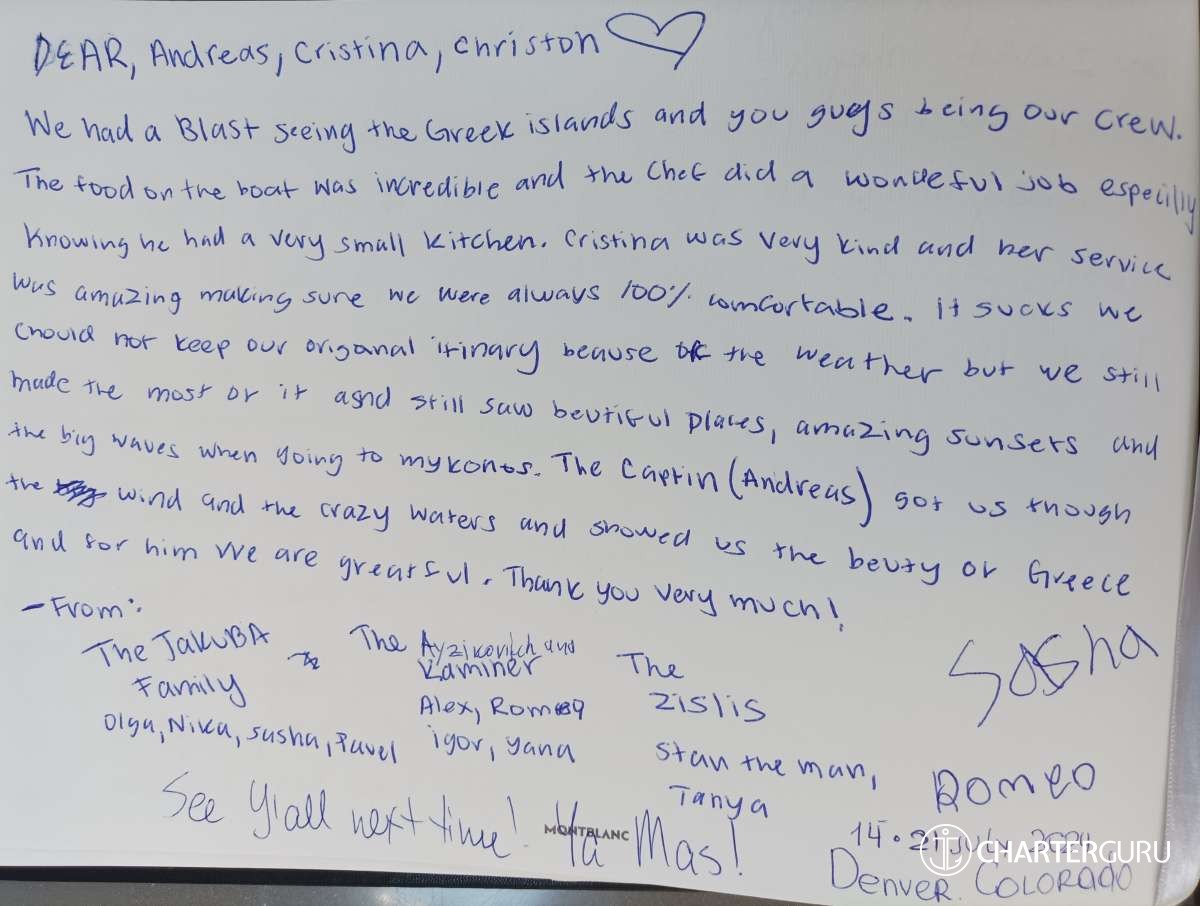 DEAR, Andreas, Cristina, christon
We had a Blast seeing the Greek islands and you guys being our crew.
The food on the boat was incredible and the Chef did a wondeful job especilly
Knowing he had a very small kitchen. Cristina was very kind and her service
was amazing making sure we were always 100% comfortable. it sucks we
chould not keep our origanal itinary beause of the weather but we still
made the most of it agnd still saw beutiful places, amazing sunsets and
the big waves when going to mykonos. The Captin (Andreas) got us though
the wind and the crazy waters and showed us the beuty of Greece
and for him We are greatful. Thank you very much!
- From:
The JAKUBA Family
Olga, Nika, sasha, Pavel
The Ayzikovitch and Kaminer
Alex, Romeo
igor, yana
The Zislis
Stan the man,
Tanya
Sasha
Romeo
See Y'all next time! Ya Mas!
MONTBLANC
14.21 July 2024
Denver. COLORADO
CHARTERGURU